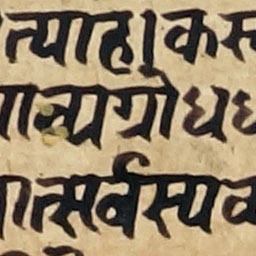 त्याह।कस्
ान्यग्रोधध
ात्सर्वस्यव